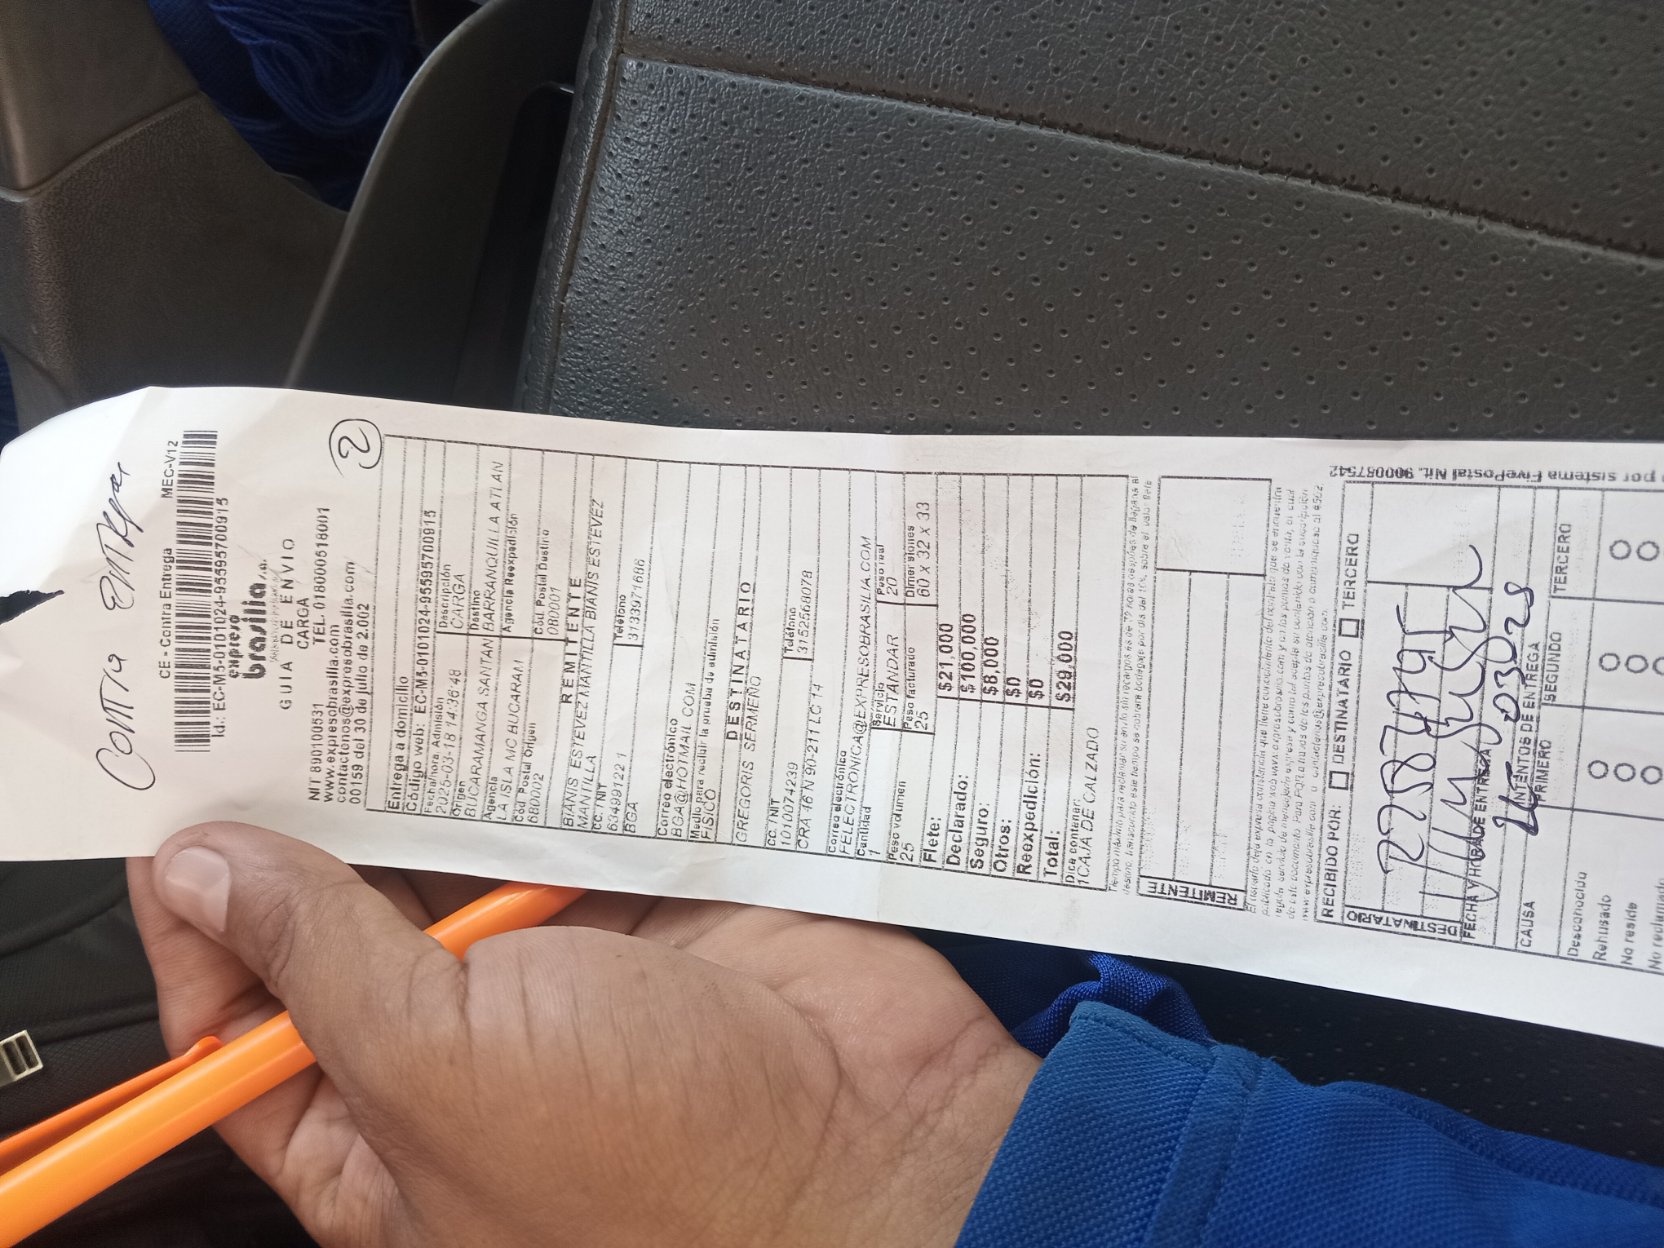 Contra Entrega
CE - Contra Entrega MEC-V12
Id.: EC-M5-0101024-95595700915
expreso
brasilia s.a.
GUIA DE ENVIO
CARGA
NIT 890100531 TEL. 018000518001
www.expresobrasilia.com
contactenos@expresobrasilia.com
00159 del 30 de julio de 2.002
2
Entrega a domicilio
Código web: EC-M5-0101024-9559570915
Fecha/hora Admisión Descripción
2025-03-18 14:36:48 CARGA
Origen Destino
BUCARAMANGA SANTAN BARRANQUILLA ATLAN
Agencia Agencia Reexpedición
LA ISLA MC BUCARAM
Cód. Postal Origen Cód. Postal Destino
680002 080001
REMITENTE
BIANIS ESTEVEZ MANTILLA BIANIS ESTEVEZ
MANTILLA
CC. / NIT Teléfono
63499122 1 3133971686
BGA
Correo electrónico
BGA@HOTMAIL.COM
Medio para recibir la prueba de admisión
FISICO
DESTINATARIO
GREGORIS SERMEÑO
CC. / NIT Teléfono
1010074239 3152568078
CRA 46 N 90-211 LC 14
Correo electrónico
FELECTRONICA@EXPRESOBRASILIA.COM
Cantidad Servicio
1 ESTANDAR
Peso volumen Peso facturado Peso real Dimensiones
25 25 20 60 x 32 x 33
Flete: $21,000
Declarado: $100,000
Seguro: $8,000
Otros: $0
Reexpedición: $0
Total: $29,000
Dice contener:
1CAJA DE CALZADO
REMITENTE
RECIBIDO POR: DESTINATARIO TERCERO
DESTINATARIO
FECHA Y HORA DE ENTREGA
INTENTOS DE ENTREGA
CAUSA PRIMERO SEGUNDO TERCERO
Desconocido
Rehusado
No reside
No reclamado
por sistema FivePostal Nit. 900087542